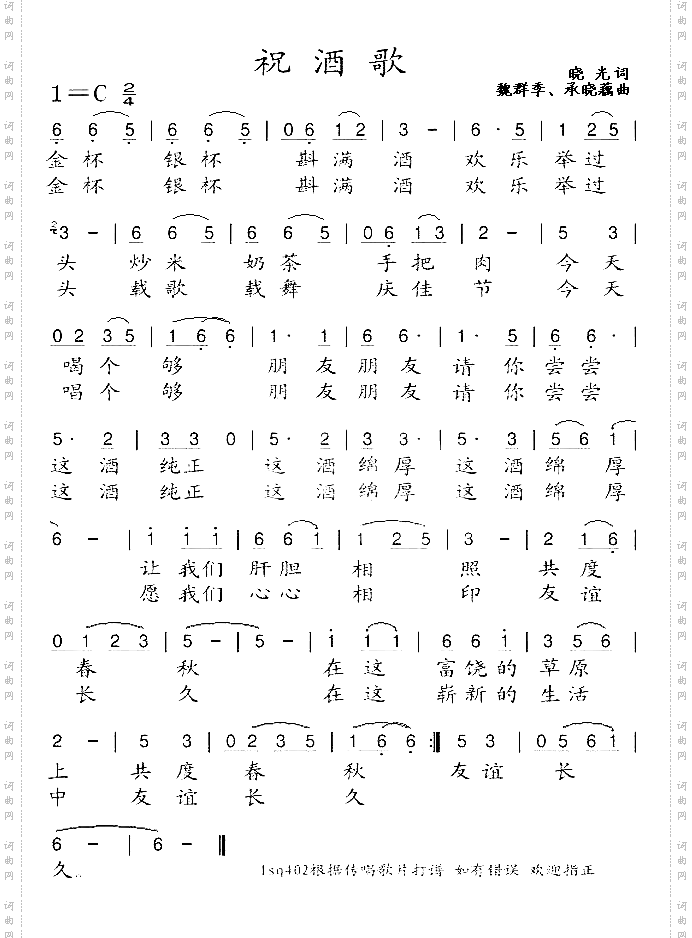 祝酒歌
晓光词
1=C 2/4
魏群季、承晓藕曲
6 6 5 | 6 6 5 | 0 6 1 2 | 3 - | 6· 5 | 1 2 5 |
金杯 银杯 斟满 酒 欢乐 举过
金杯 银杯 斟满 酒 欢乐 举过
3 - | 6 6 5 | 6 6 5 | 0 6 1 3 | 2 - | 5 3 |
头 炒米 奶茶 手把 肉 今天
头 载歌 载舞 庆佳 节 今天
0 2 3 5 | 1 6 6 | 1· 1 | 6 6· | 1· 5 | 6 6· |
喝个 够 朋友 朋友 请你 尝尝
唱个 够 朋友 朋友 请你 尝尝
5· 2 | 3 3 0 | 5· 2 | 3 3· | 5· 3 | 5 6 1 |
这酒 纯正 这酒 绵厚 这酒 绵厚
这酒 纯正 这酒 绵厚 这酒 绵厚
6 - | 1 1 1 | 6 6 1 | 1 2 5 | 3 - | 2 1 6 |
让我们 肝胆 相 照 共度
愿我们 心心 相 印 友谊
0 1 2 3 | 5 - | 5 - | 1 1 1 | 6 6 1 | 3 5 6 |
春 秋 在这 富饶的 草原
长 久 在这 崭新的 生活
2 - | 5 3 | 0 2 3 5 | 1 6 6 :‖ 5 3 | 0 5 6 1 |
上 共度 春 秋 友谊 长
中 友谊 长 久
6 - | 6 - ‖
久..
1sq402根据传唱歌片打谱 如有错误 欢迎指正
词曲网